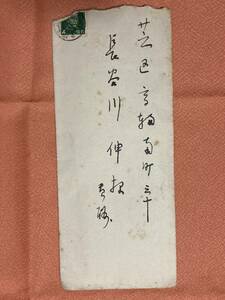 芝区高輪南町三十
長谷川伸様